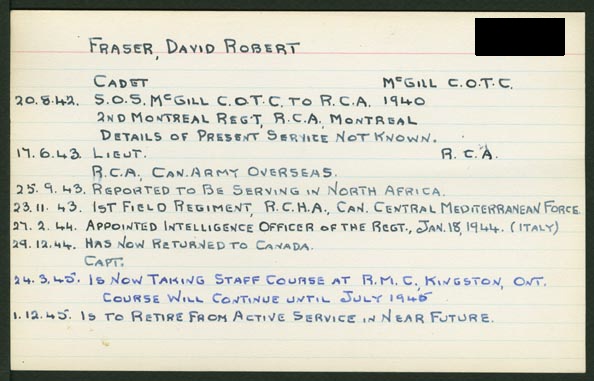 FRASER, DAVID ROBERT
CADET McGILL C.O.T.C.
20.8.42. S.O.S. McGILL C.O.T.C. TO R.C.A. 1940
2ND MONTREAL REGT, R.C.A. MONTREAL
DETAILS OF PRESENT SERVICE NOT KNOWN.
17.6.43. LIEUT. R.C.A.
R.C.A., CAN. ARMY OVERSEAS.
25.9.43. REPORTED TO BE SERVING IN NORTH AFRICA.
23.11.43. 1ST FIELD REGIMENT, R.C.H.A., CAN. CENTRAL MEDITERRANEAN FORCE.
27.2.44. APPOINTED INTELLIGENCE OFFICER OF THE REGT., JAN.18, 1944. (ITALY)
29.12.44. HAS NOW RETURNED TO CANADA.
CAPT.
24.3.45. IS NOW TAKING STAFF COURSE AT R.M.C., KINGSTON, ONT.
COURSE WILL CONTINUE UNTIL JULY 1945
1.12.45. IS TO RETIRE FROM ACTIVE SERVICE IN NEAR FUTURE.